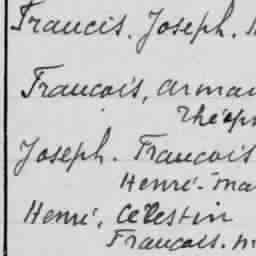 Francis. Joseph.
Francois, arman
Théop
Joseph. Francois
Henri-ma
Henri, Celestin
Francois. m